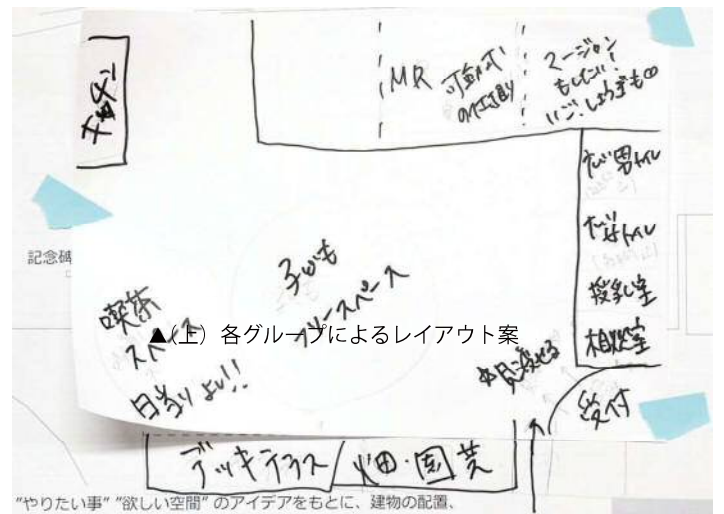 キッチン
MR
可動式
の仕切り
マージャン
もしたい!
いご・しょうぎも
男トイレ
女トイレ
授乳室
相談室
受付
記念碑
子ども
フリースペース
喫茶
スペース
日当りよい!!
▲(上)各グループによるレイアウト案
見渡せる
デッキテラス/畑・園芸
"やりたい事" "欲しい空間" のアイデアをもとに、建物の配置、